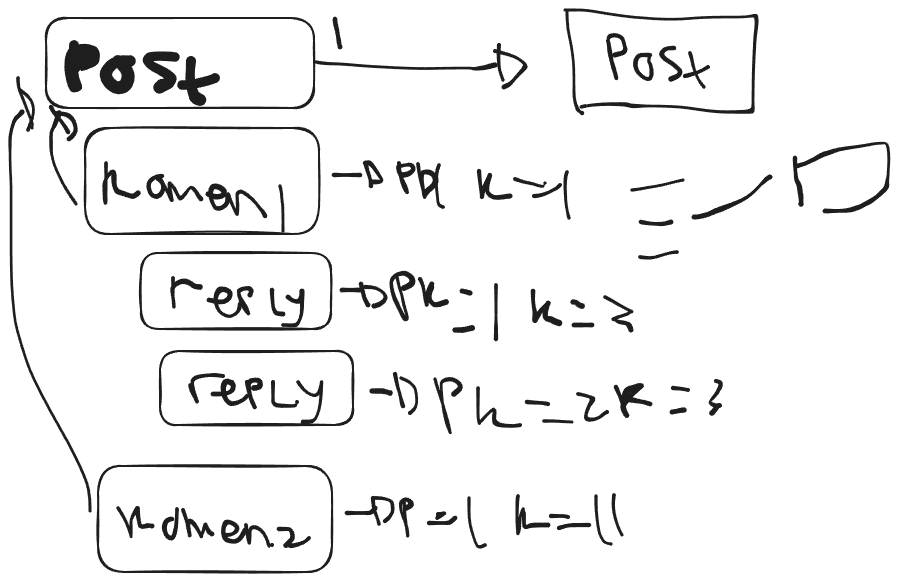 Post 1 Post
Komen1 k=1
reply Pk=1 k=3
reply Pk=2 k=3
Komen2 P=1 k=11